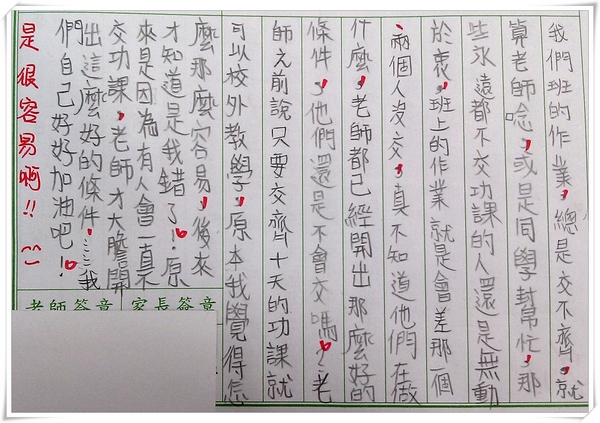 我們班的作業，總是交不齊，就
算老師唸，或是同學幫忙，那
些永遠都不交功課的人還是無動
於衷，班上的作業就是會差那一個
、兩個人沒交，真不知道他們在做
什麼，老師都已經開出那麼好的
條件，他們還是不會交嗎？老
師之前說只要交齊十天的功課就
可以校外教學，原本我覺得怎
麼那麼容易，後來
才知道是我錯了！原
來是因為有人會真不
交功課，老師才大膽開
出這麼好的條件，……我
們自己好好加油吧！
是很容易啊!! ^^
家長簽章
老師簽章